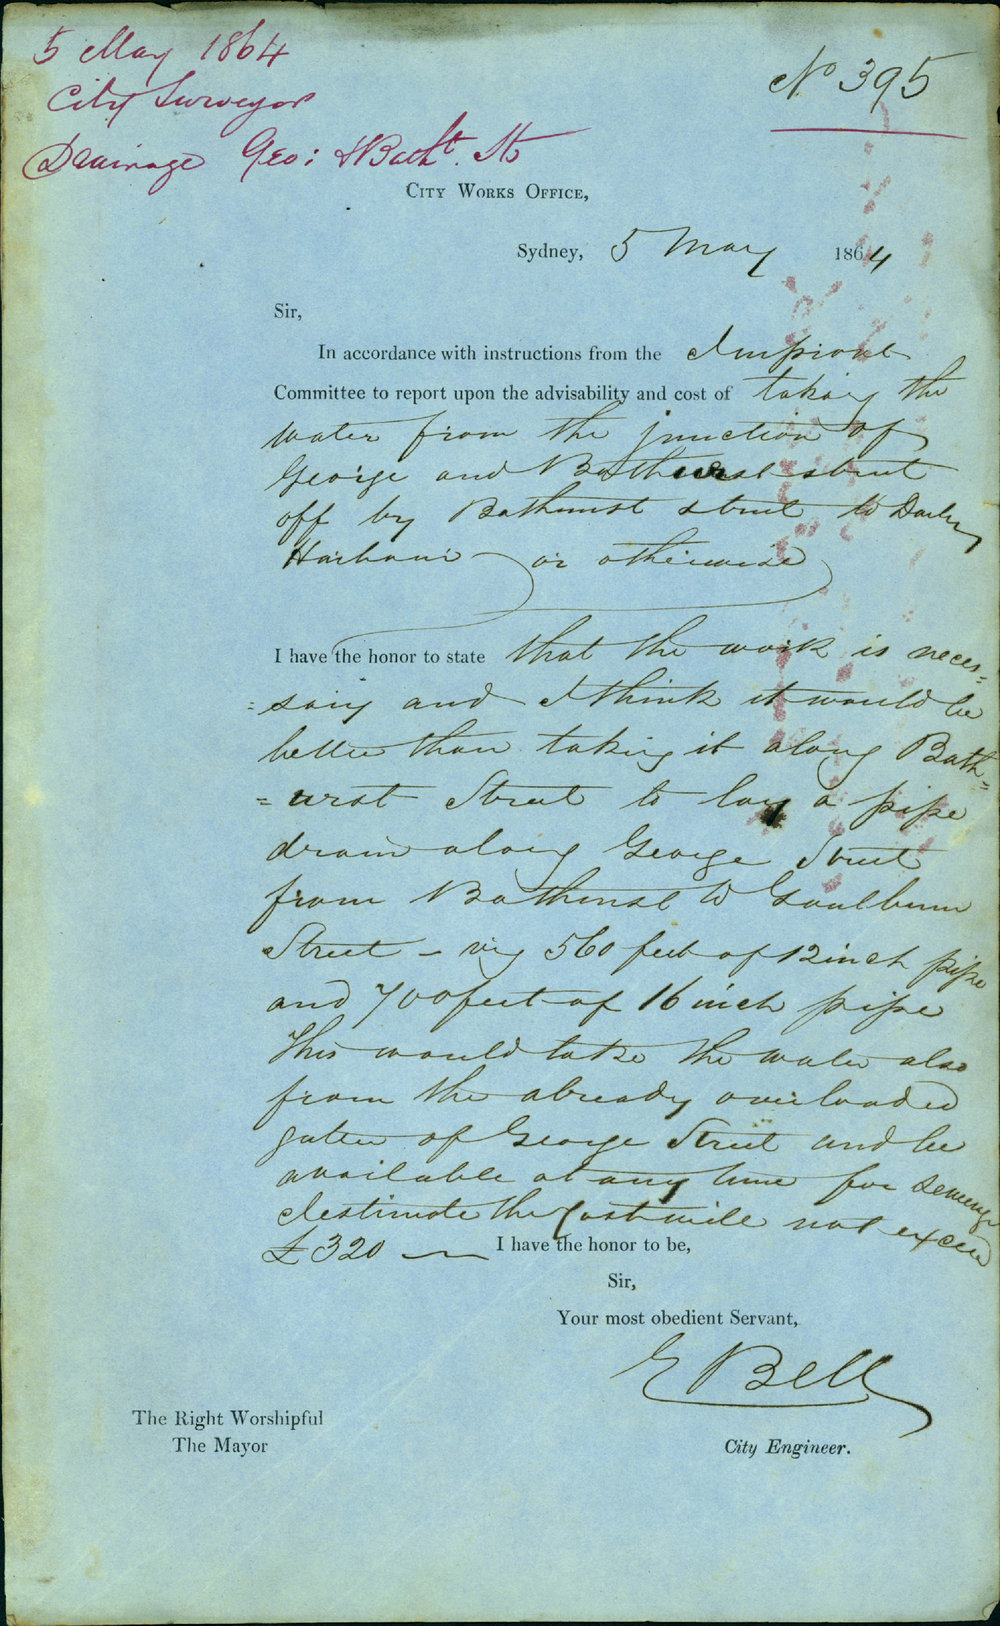 5 May 1864
City Surveyor
Drainage Geo: & Batht. Sts
No 395
CITY WORKS OFFICE,
Sydney, 5 May 1864
Sir,
In accordance with instructions from the Improvt
Committee to report upon the advisability and cost of taking the
water from the junction of
George and Bathurst street
off by Bathurst street to Darling
Harbour or otherwise
I have the honor to state that the work is neces=
=sary and I think it would be
better than taking it along Bath=
=urst Street to lay a pipe
drain along George Street
from Bathurst to Goulburn
Street – viz 560 feet of 12 inch pipe
and 700 feet of 16 inch pipe
This would take the water also
from the already overloaded
gutter of George Street and be
available at any time for sewerage
I estimate the Cost will not exceed
£320 — I have the honor to be,
Sir,
Your most obedient Servant,
E Bell
The Right Worshipful
The Mayor
City Engineer.